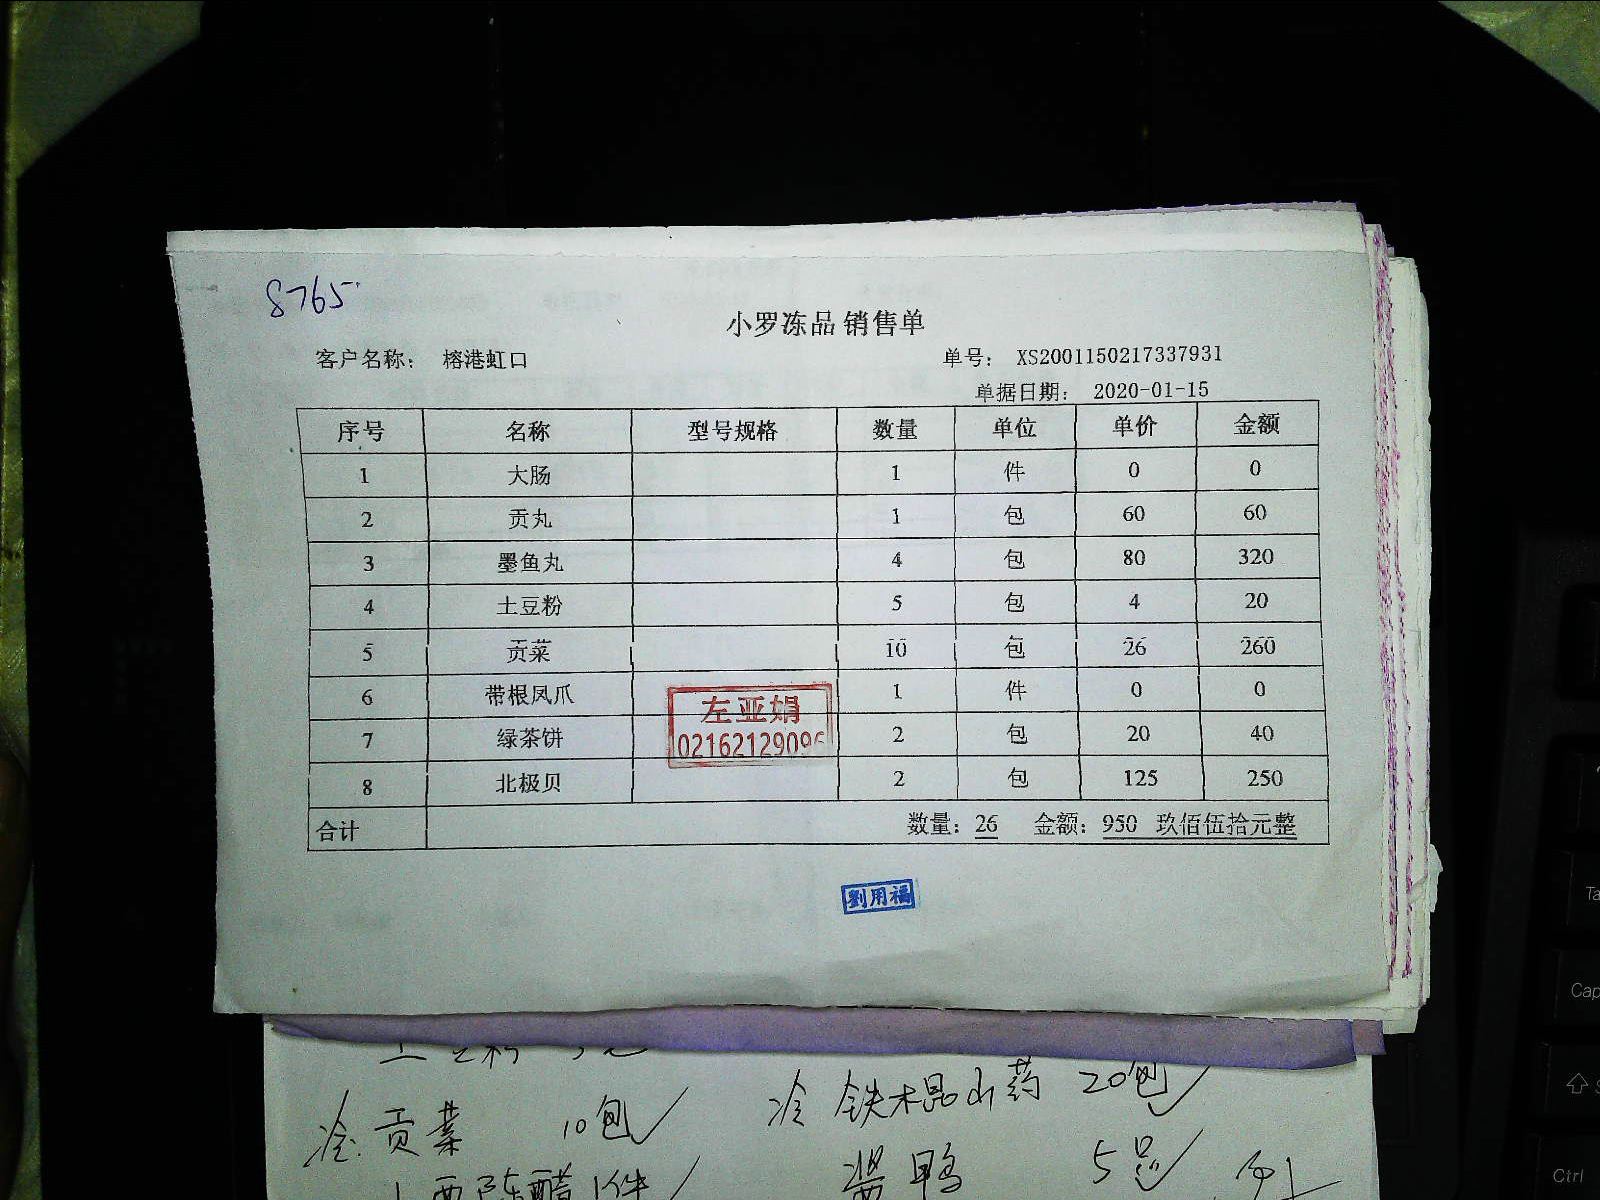 8765
小罗冻品 销售单
客户名称： 榕港虹口 单号： XS2001150217337931
单据日期： 2020-01-15
序号 名称 型号规格 数量 单位 单价 金额
1 大肠 1 件 0 0
2 贡丸 1 包 60 60
3 墨鱼丸 4 包 80 320
4 土豆粉 5 包 4 20
5 贡菜 10 包 26 260
6 带根凤爪 1 件 0 0
7 绿茶饼 2 包 20 40
8 北极贝 2 包 125 250
左亚娟
02162129096
合计 数量：26 金额：950 玖佰伍拾元整
劉用福
冷 铁木棍山药 20包
冷 贡菜 10包
酱鸭 5只
陈醋 1件
Ctrl